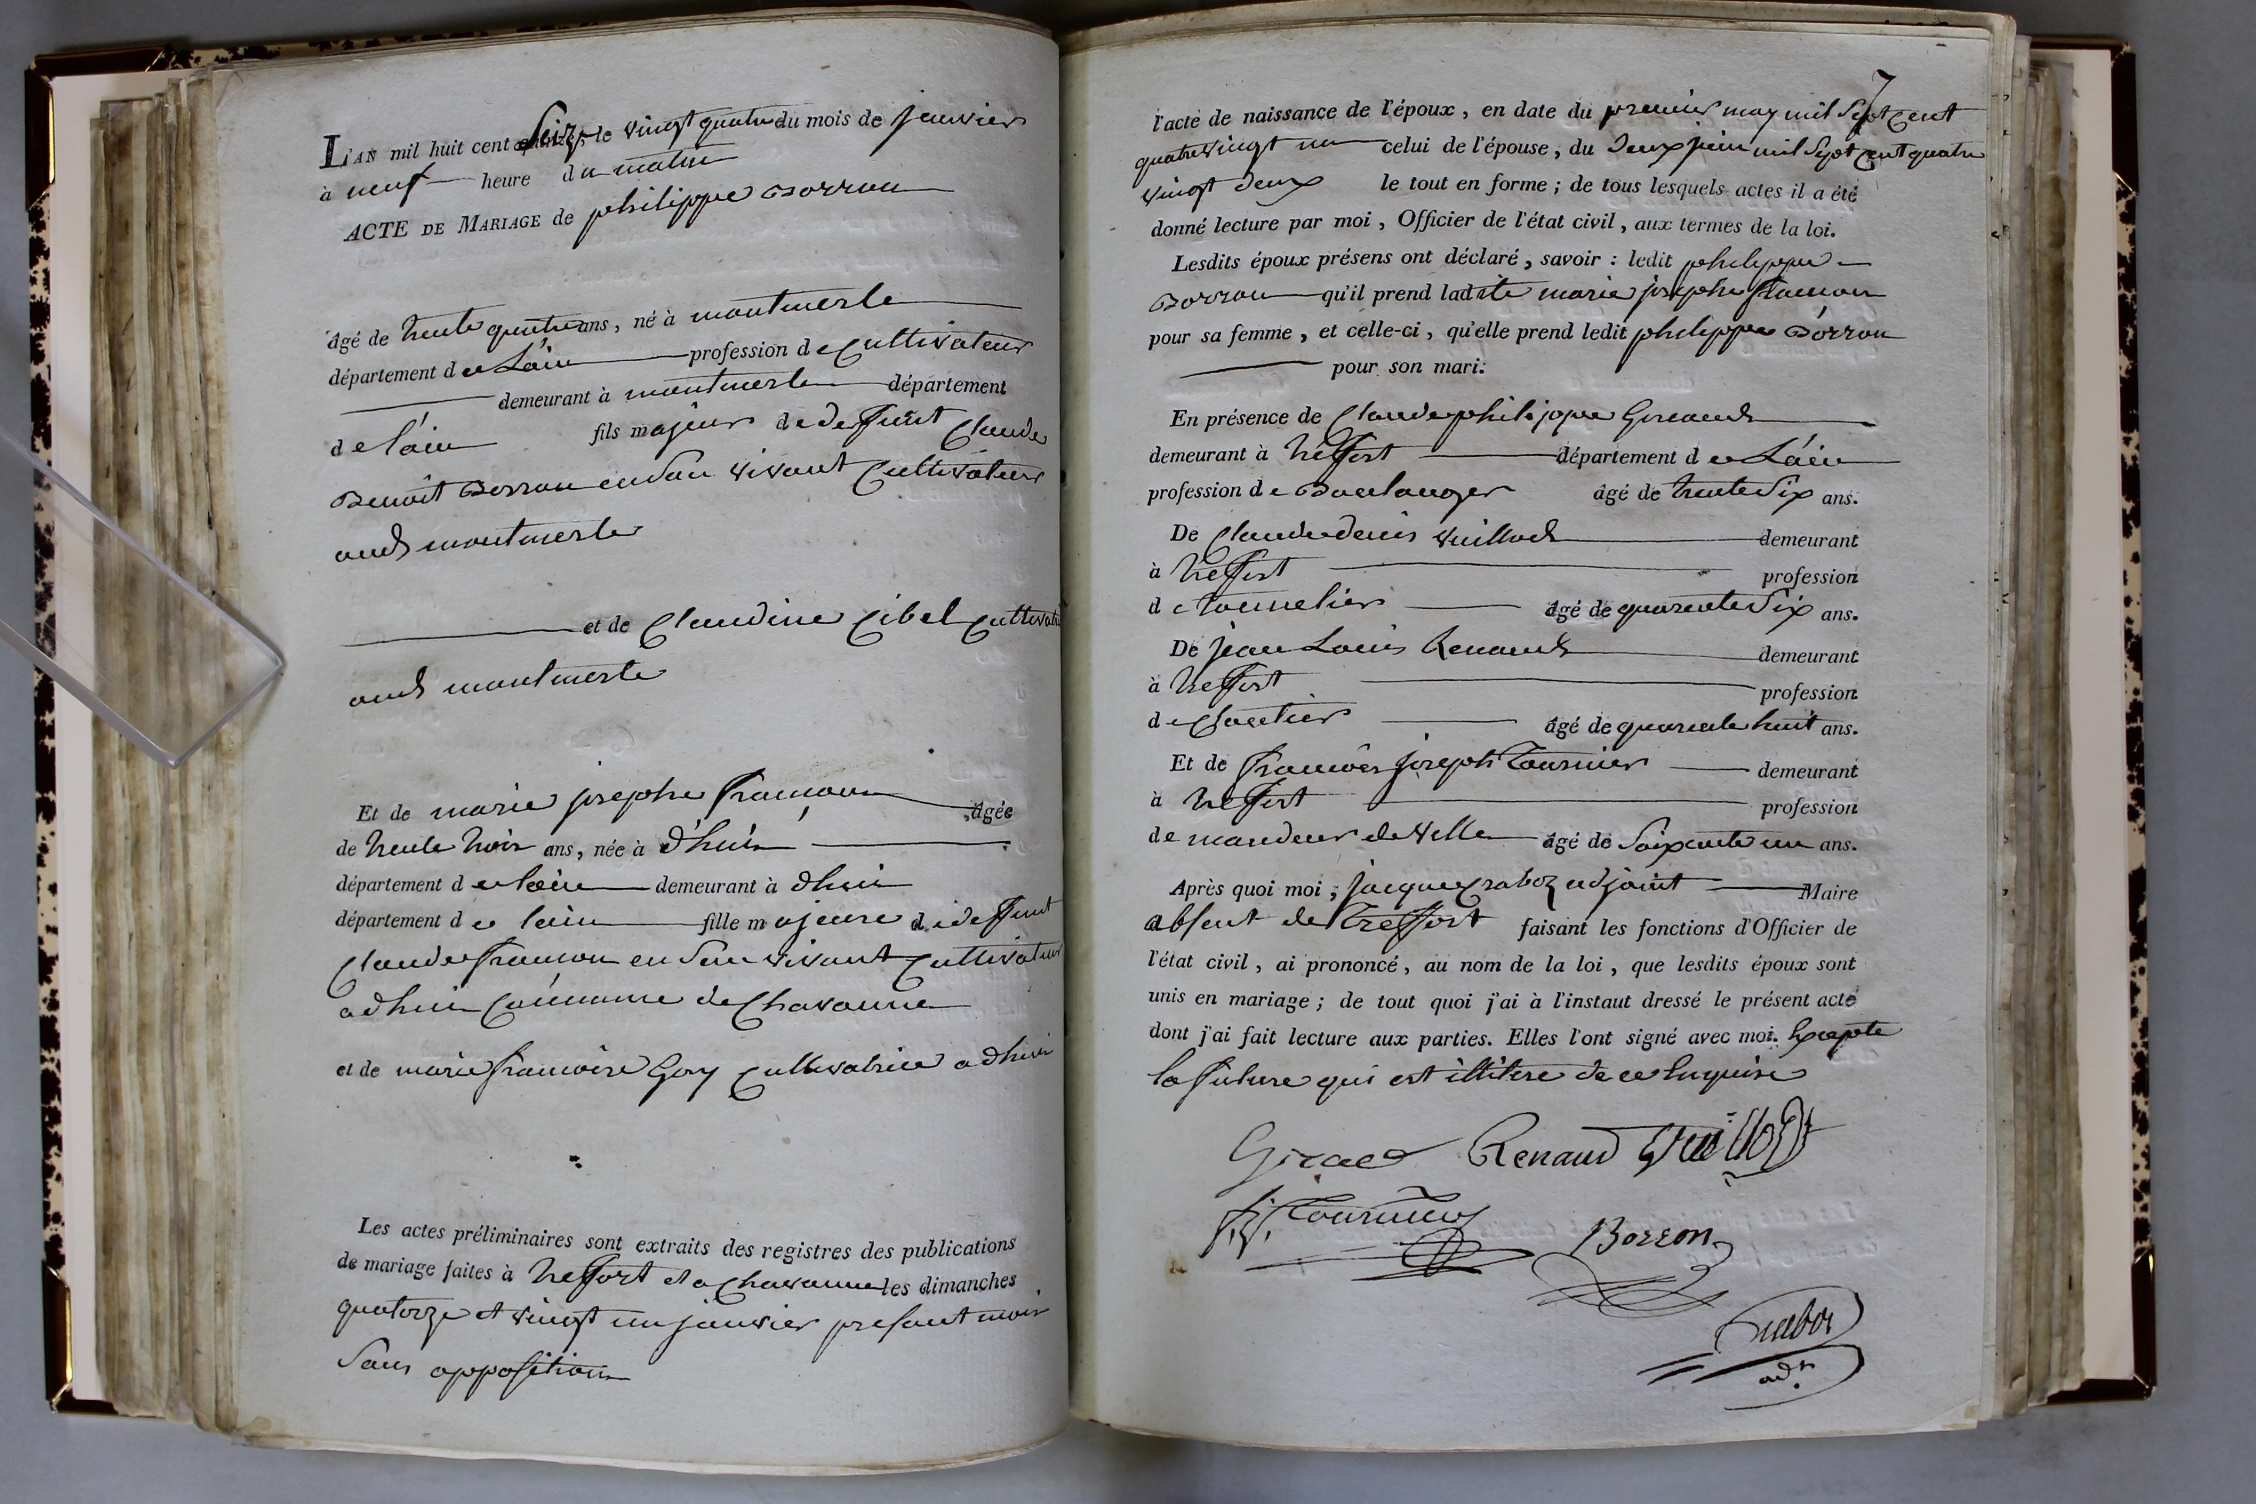 L'AN mil huit cent Seize, le vingt quatre du mois de janvier
à neuf heure du matin
ACTE DE MARIAGE de philippe Borron
âgé de trente quatre ans, né à montmerle
département de Láin profession de Cultivateur
demeurant à montmerle département
de láin fils majeur de deffunt Claude
Benoit Borron en Son vivant Cultivateur
aud montmerle
et de Claudine Cibel Cultivatri
aud montmerle
Et de marie josephe francon âgée
de trente trois ans, née à d'huis
département de láin demeurant à dhuis
département de láin fille majeure de deffunt
Claude francon en Son vivant Cultivateur
a dhuis Commune de Chavanne
et de marie francoise Goy Cultivatrice a dhuis
Les actes préliminaires sont extraits des registres des publications
de mariage faites à treffort et a Chavanne les dimanches
quatorze et vingt un janvier présant mois
Sans opposition
7
l'acte de naissance de l'époux, en date du premier may mil Sept Cent
quatre vingt un celui de l'épouse, du deux juin mil Sept Cent quatre
vingt deux le tout en forme; de tous lesquels actes il a été
donné lecture par moi, Officier de l'état civil, aux termes de la loi.
Lesdits époux présens ont déclaré, savoir : ledit philippe
Borron qu'il prend ladite marie josephe francon
pour sa femme, et celle-ci, qu'elle prend ledit philippe Borron
pour son mari.
En présence de Claude philippe Giraud
demeurant à treffort département de Láin
profession de Boulanger âgé de trente Six ans.
De Claude denis vuillod demeurant
à treffort profession
de tonnelier âgé de quarente Six ans.
De jean Louis Renaud demeurant
à treffort profession
de Cloutier âgé de quarente huit ans.
Et de francois joseph tournier demeurant
à treffort profession
de mandeur de ville âgé de Soixente un ans.
Après quoi moi, jacque Craboz adjoint Maire
absent de treffort faisant les fonctions d'Officier de
l'état civil, ai prononcé, au nom de la loi, que lesdits époux sont
unis en mariage; de tout quoi j'ai à l'instaut dressé le présent acte
dont j'ai fait lecture aux parties. Elles l'ont signé avec moi. Excepte
la future qui est illitere de ce Enquise
Giraud Renaud Vuillod
f. j. Tournier
Borron
Craboz
adt